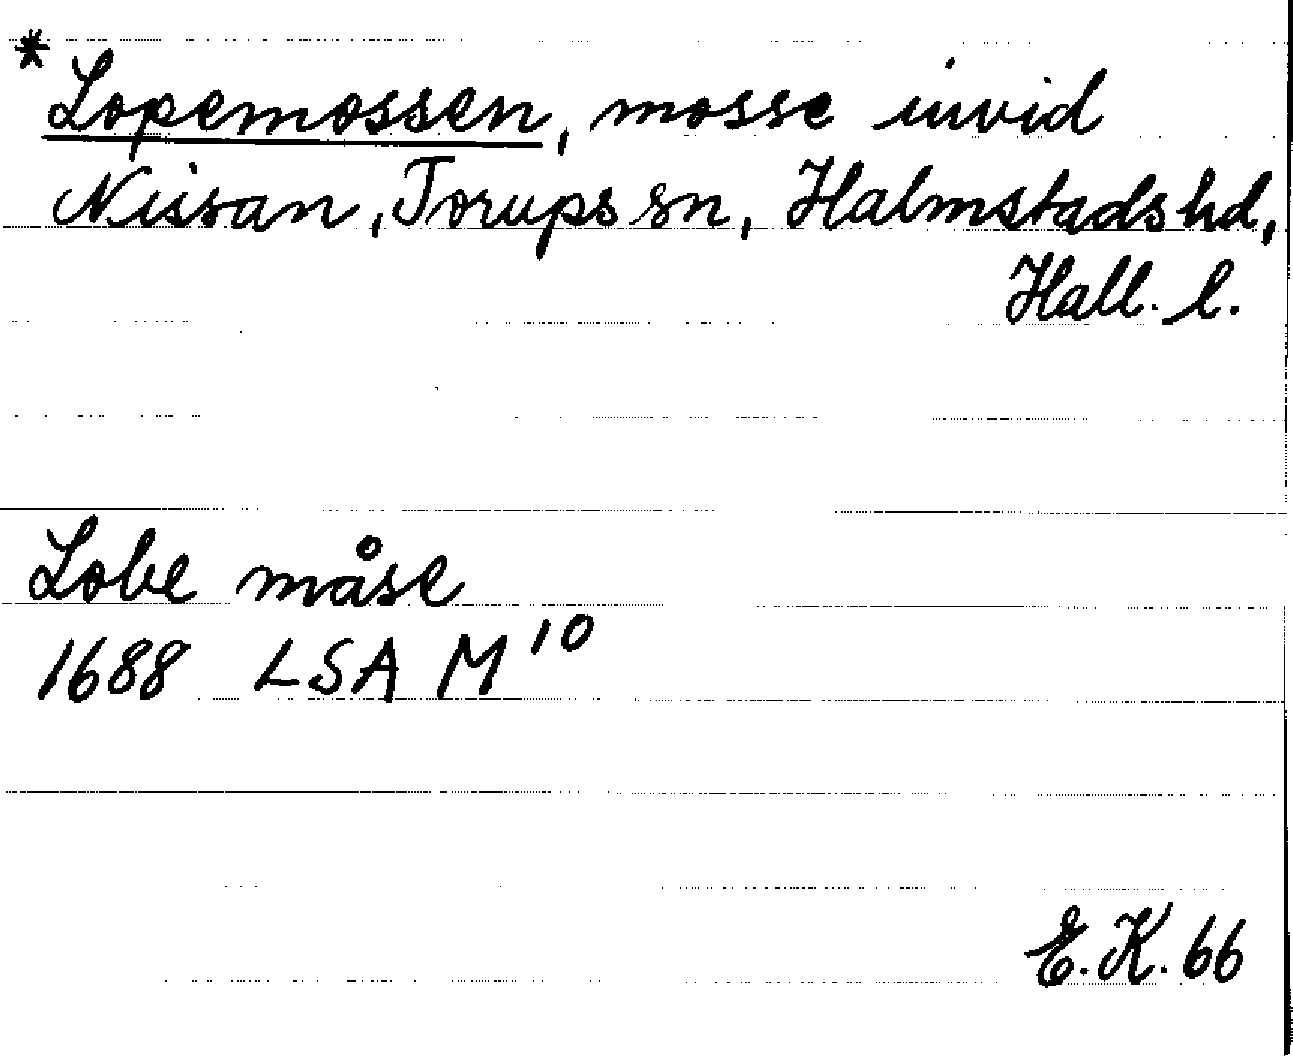 *Lopemossen, mosse invid
Nissan, Torups sn, Halmstads hd,
Hall. l.
Lobe måse
1688 LSA M¹⁰
E.K. 66